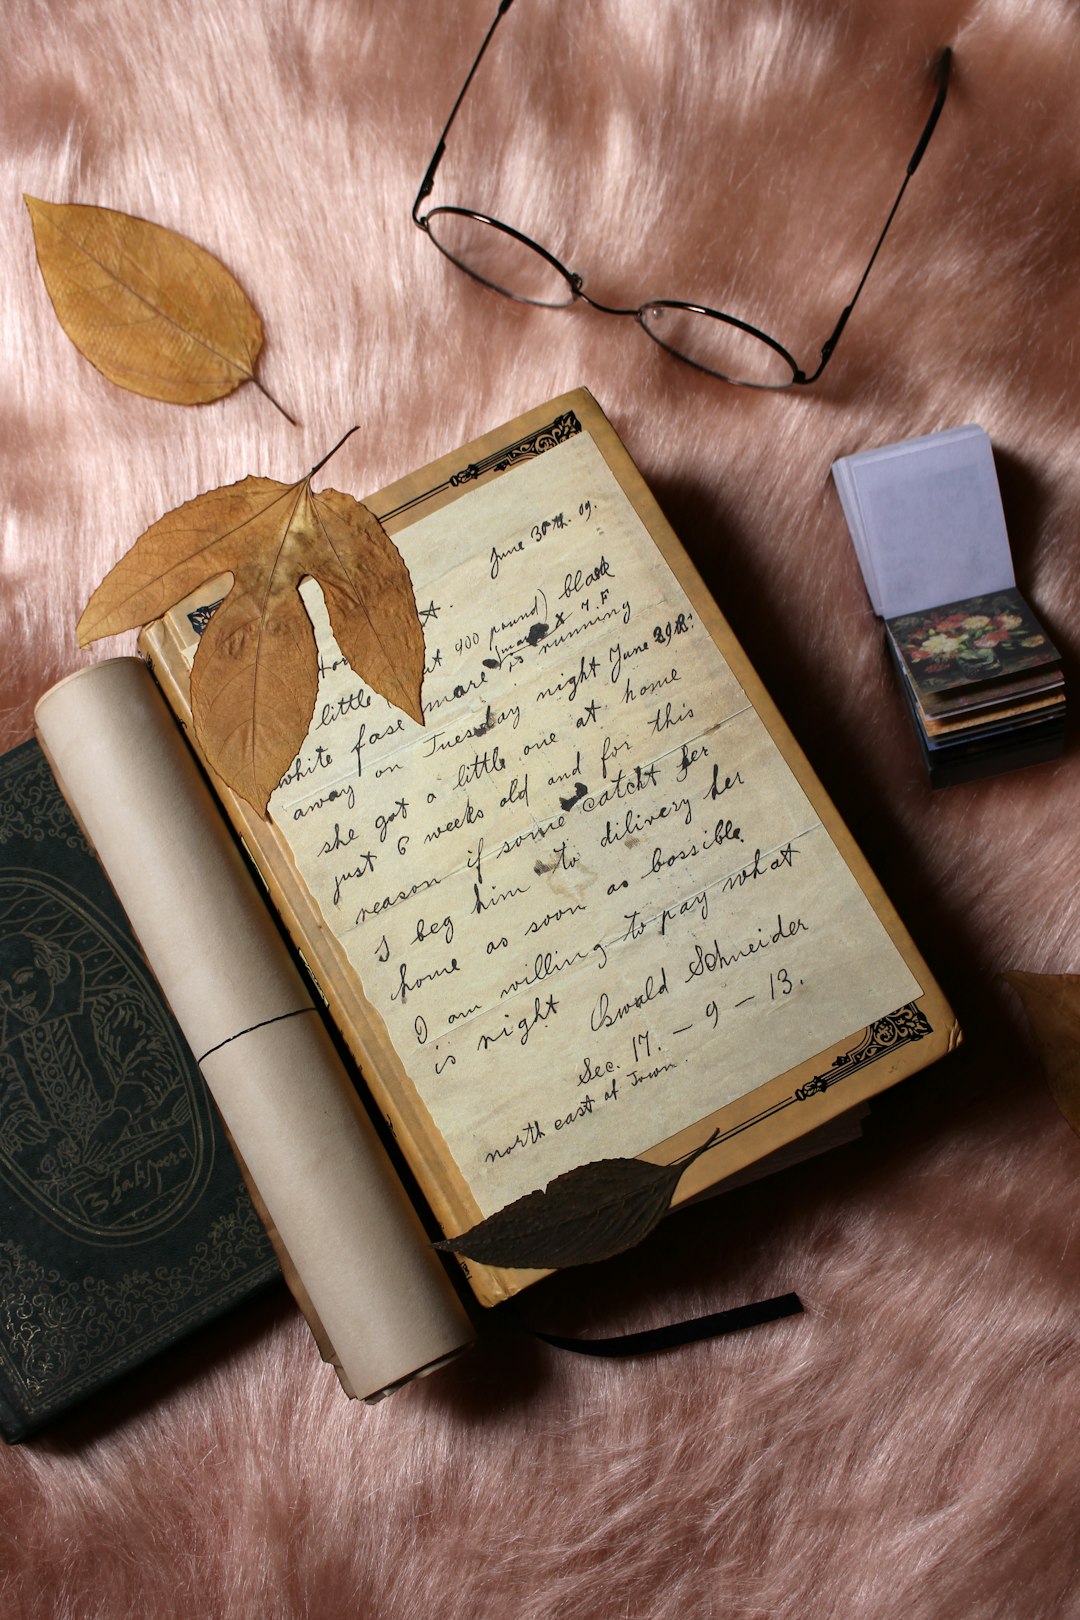 June 30th. 09.
A.
for 900 pound) black
little mare X 7.F
white fase is running
away on Tuesday night June 29th.
she got a little one at home
just 6 weeks old and for this
reason if some catcht her
I beg him to dilivery her
home as soon as bossible.
I am willing to pay what
is right Oswald Schneider
Sec. 17. — 9 — 13.
north east of Town.